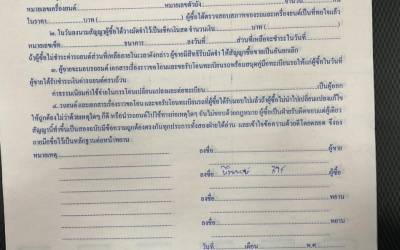 หมายเลขเครื่องยนต์ หมายเลขตัวถัง จำนวน คัน
ในราคา บาท ( ) ผู้ซื้อได้ตรวจสอบสภาพของรถและเครื่องยนต์เป็นที่พอใจแล้ว
๒. ในวันลงนามสัญญาผู้ซื้อได้วางมัดจำไว้เป็นเช็คเงินสด จำนวนเงิน บาท ( )
หมายเลขเช็ค ธนาคาร ลงวันที่ ส่วนที่เหลือจะชำระในวันที่
ถ้าผู้ซื้อไม่ชำระค่ารถยนต์ส่วนที่เหลือภายในเวลาดังกล่าว ผู้ขายมีสิทธิริบมัดจำ ให้สัญญาซื้อขายเป็นอันยกเลิก
๓. ผู้ขายจะมอบรถยนต์ เอกสารเรื่องราวขอโอน และขอรับโอนทะเบียนรถพร้อมสมุดคู่มือทะเบียนรถให้แก่ผู้ซื้อในวันที่
ผู้ขายได้รับชำระเงินค่ารถยนต์ครบถ้วน
ค่าธรรมเนียมค่าใช้จ่ายในการโอนเปลี่ยนแปลงแต่อทะเบียน เป็นผู้ออก
๔. รถยนต์ และเอกสารเรื่องราวขอโอน และขอรับโอนทะเบียนรถที่ผู้ซื้อได้รับมอบไปแล้วถ้าผู้ซื้อไม่นำไปเปลี่ยนแปลงแก้ไข
ให้ถูกต้องไม่ว่าด้วยเหตุใดๆ ก็ดี หรือนำรถยนต์ไปใช้ทำผิดเหตุใดๆ อันไม่ชอบด้วยกฎหมาย ผู้ซื้อเป็นฝ่ายรับผิดชอบแต่ผู้เดียว
สัญญานี้ทำขึ้นเป็นสองฉบับมีข้อความถูกต้องตรงกันทุกประการทั้งสองฝ่ายได้อ่าน และเข้าใจข้อความด้วยดีโดยตลอด จึงลง
ลายมือชื่อไว้เป็นหลักฐานต่อหน้าพยาน
หมายเหตุ ลงชื่อ ผู้ขาย
ลงชื่อ ผู้ซื้อ
ลงชื่อ พยาน
ลงชื่อ พยาน
วันที่ เดือน พ.ศ.